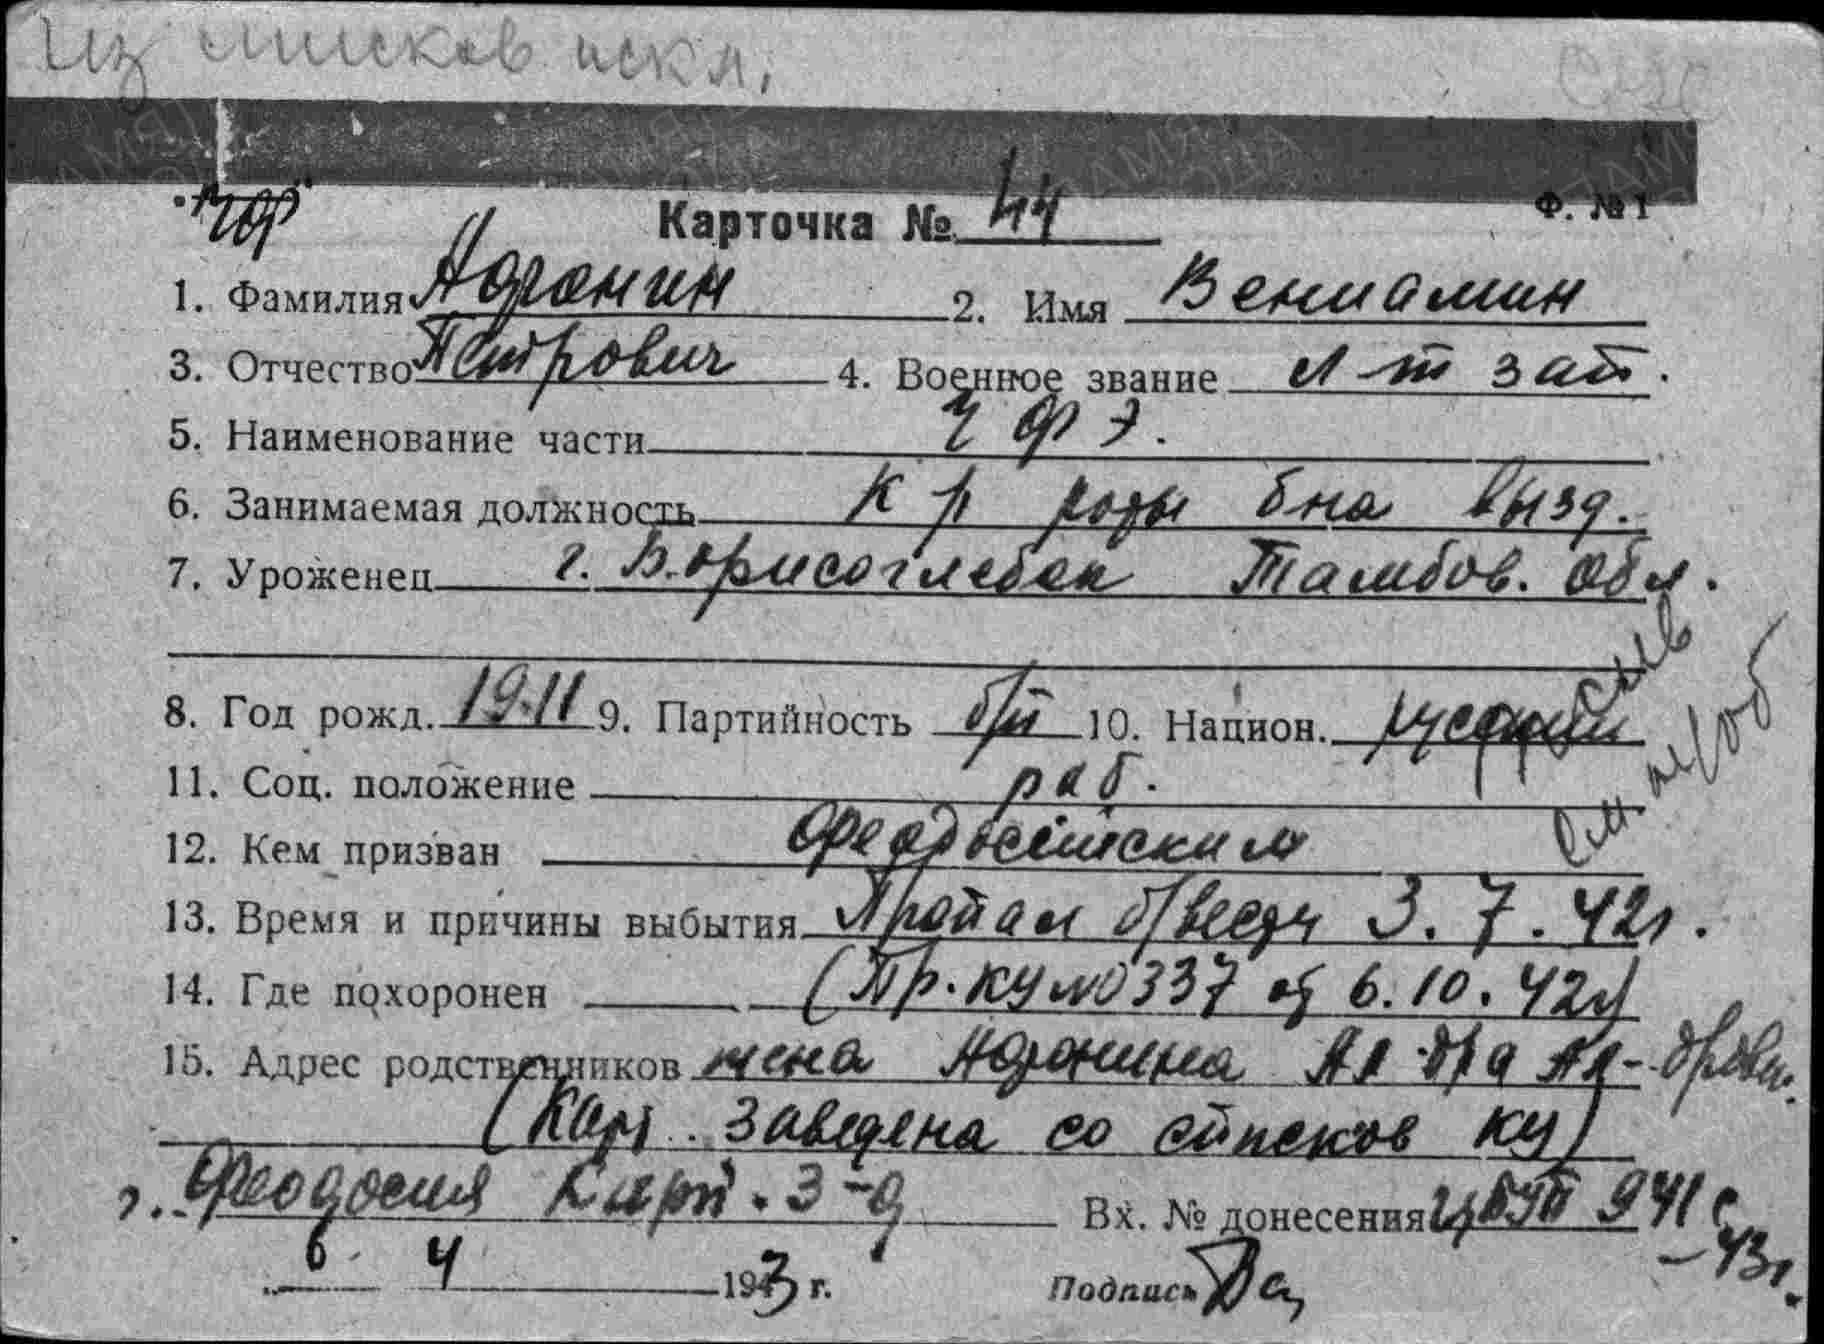 Из списков искл.
Ф. № 1
ЧФ
Карточка № 44
1. Фамилия Адронин 2. Имя Вениамин
3. Отчество Петрович 4. Военное звание л-т зап.
5. Наименование части ЧФ
6. Занимаемая должность К-р роты б-на
7. Уроженец г. Борисоглебск Тамбов. обл.
8. Год рожд. 1911 9. Партийность б/п 10. Национ. русский
11. Соц. положение раб.
12. Кем призван Феодосийским
13. Время и причины выбытия Пропал б/вести 3.7.42г.
14. Где похоронен (Пр. КУ №0337 от 6.10.42г)
15. Адрес родственников жена Адронина Ал-дра Ал-дровн.
(Карт. заведена со списков КУ)
г. Феодосия Вх. № донесения 941с
-43г.
6 4 1943 г. Подпись
См на об